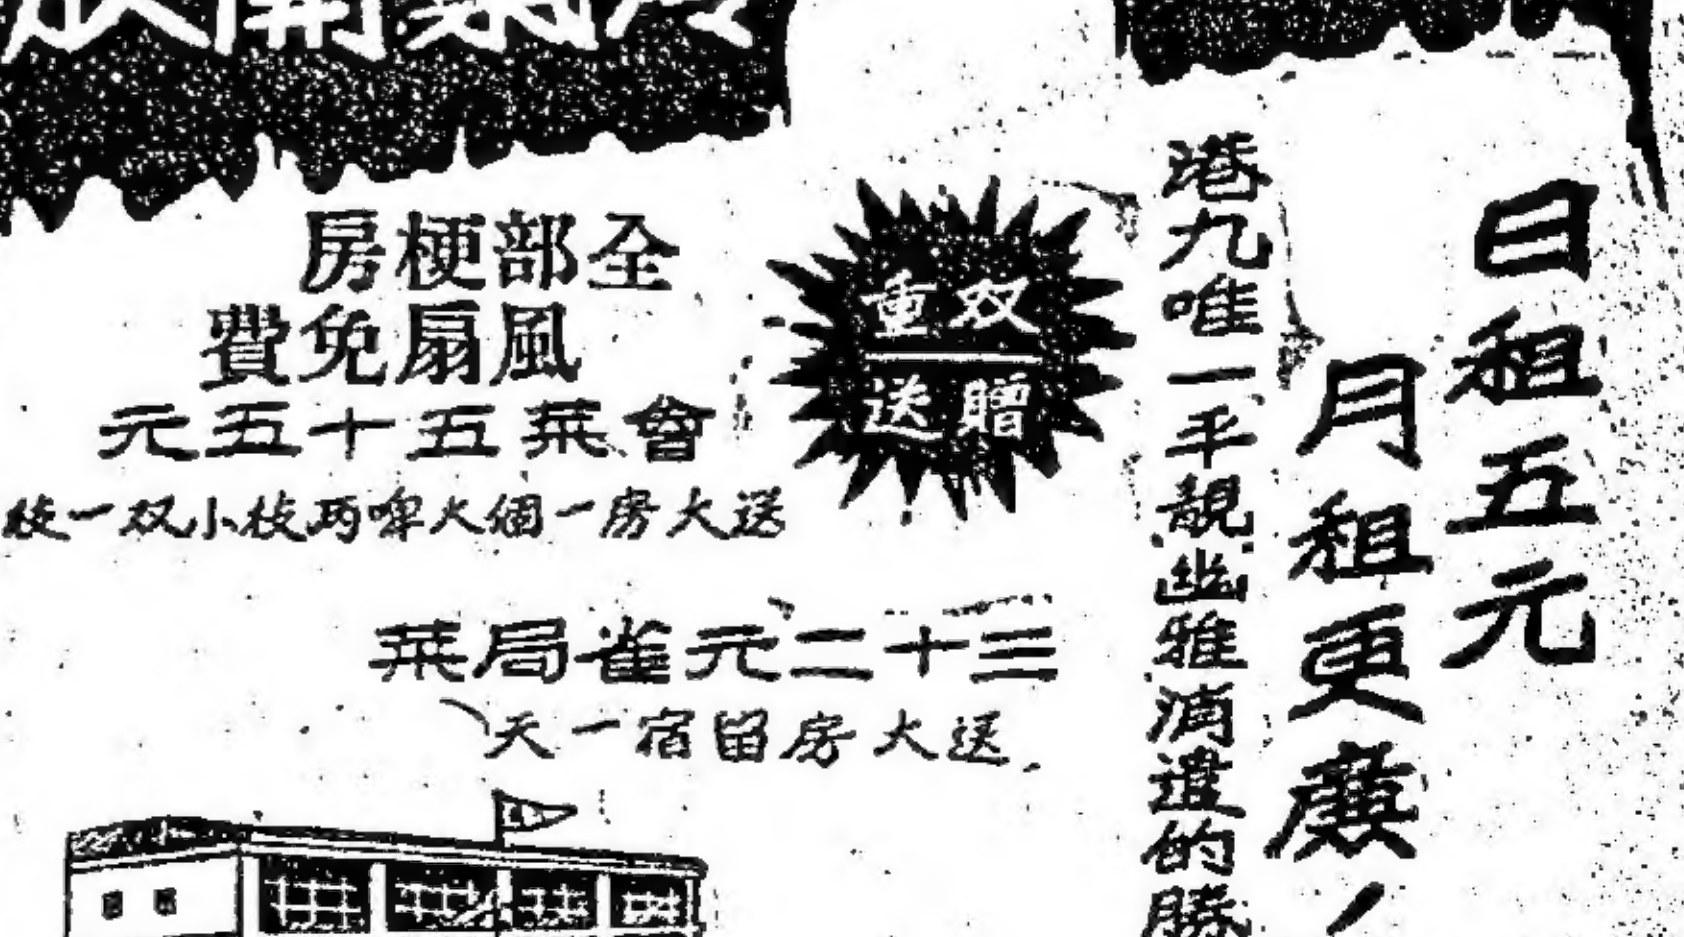 冷氣開放
日租五元
月租更廉！
港九唯一平靚幽雅消遣的勝
双重
贈送
全部梗房
風扇免費
會菜五十五元
送大房一個大啤両枝小双一枝
三十二元雀局菜
送大房留宿一天